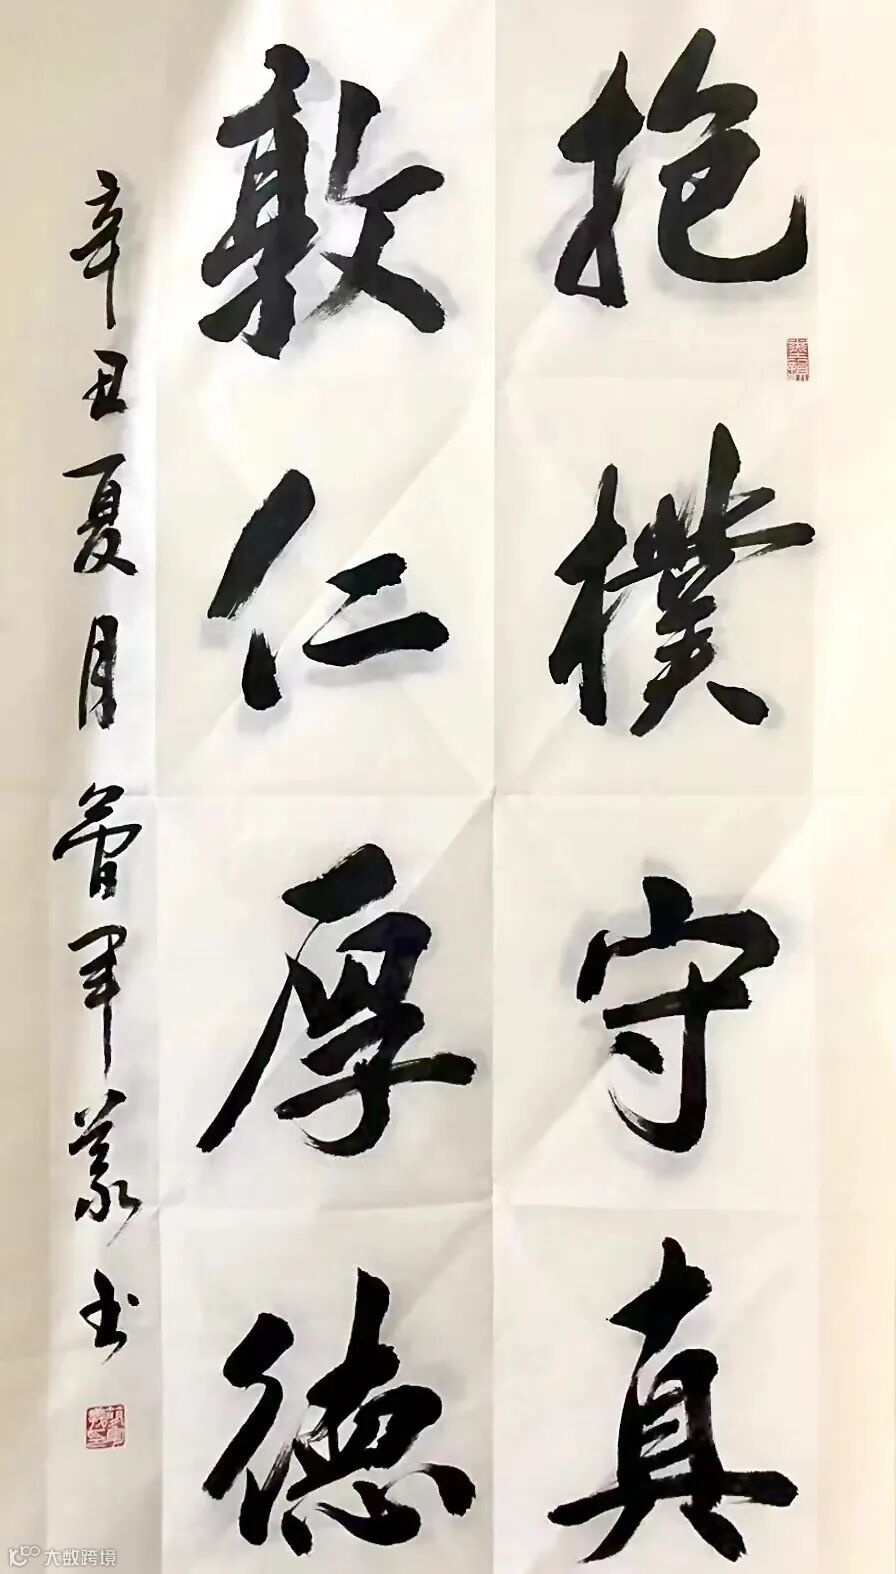 抱樸守真
敦仁厚德
辛丑夏月曾军义书
大数跨境